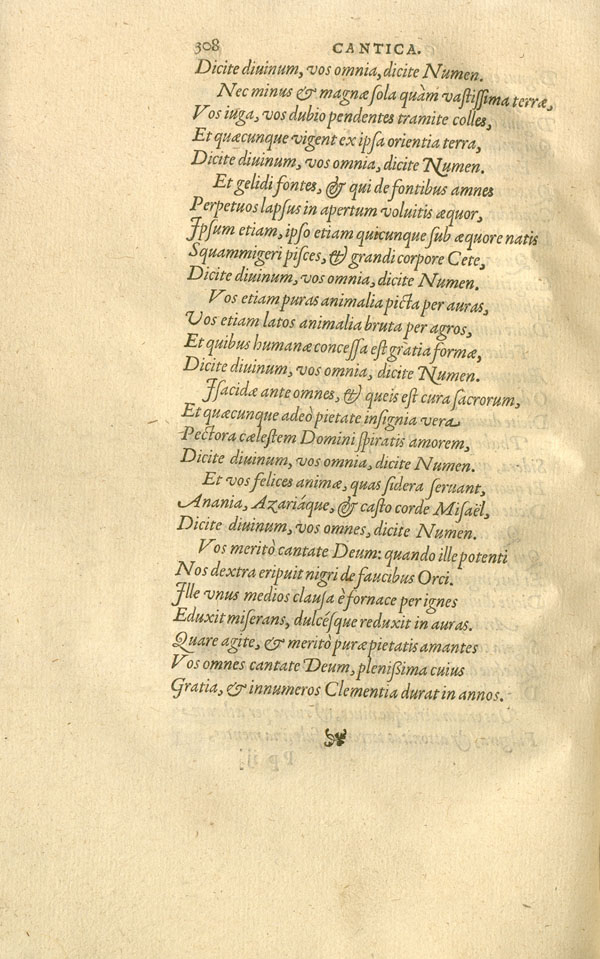 308 CANTICA.
Dicite diuinum, vos omnia, dicite Numen.
Nec minus & magnæ sola quàm vastissima terræ,
Vos iuga, vos dubio pendentes tramite colles,
Et quæcunque vigent ex ipsa orientia terra,
Dicite diuinum, vos omnia, dicite Numen.
Et gelidi fontes, & qui de fontibus amnes
Perpetuos lapsus in apertum voluitis æquor,
Ipsum etiam, ipso etiam quicunque sub æquore natis
Squammigeri pisces, & grandi corpore Cete,
Dicite diuinum, vos omnia, dicite Numen.
Vos etiam puras animalia picta per auras,
Vos etiam latos animalia bruta per agros,
Et quibus humanæ concessa est gratia formæ,
Dicite diuinum, vos omnia, dicite Numen.
Isacidæ ante omnes, & queis est cura sacrorum,
Et quæcunque adeò pietate insignia vera
Pectora cælestem Domini spiratis amorem,
Dicite diuinum, vos omnia, dicite Numen.
Et vos felices animæ, quas sidera seruant,
Anania, Azariáque, & casto corde Misaël,
Dicite diuinum, vos omnes, dicite Numen.
Vos meritò cantate Deum: quando ille potenti
Nos dextra eripuit nigri de faucibus Orci.
Ille vnus medios clausa è fornace per ignes
Eduxit miserans, dulcésque reduxit in auras.
Quare agite, & meritò puræ pietatis amantes
Vos omnes cantate Deum, plenißima cuius
Gratia, & innumeros Clementia durat in annos.